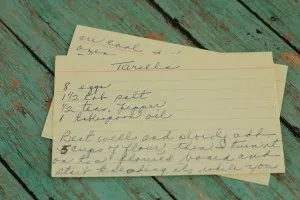 are cool
oven
Taralls
8 eggs
1½ tab salt
½ teas. pepper
1 tablespoon oil
Beat well and slowly add
5 cups of flour, then turn it
on to a floured board and
start kneading it, while you